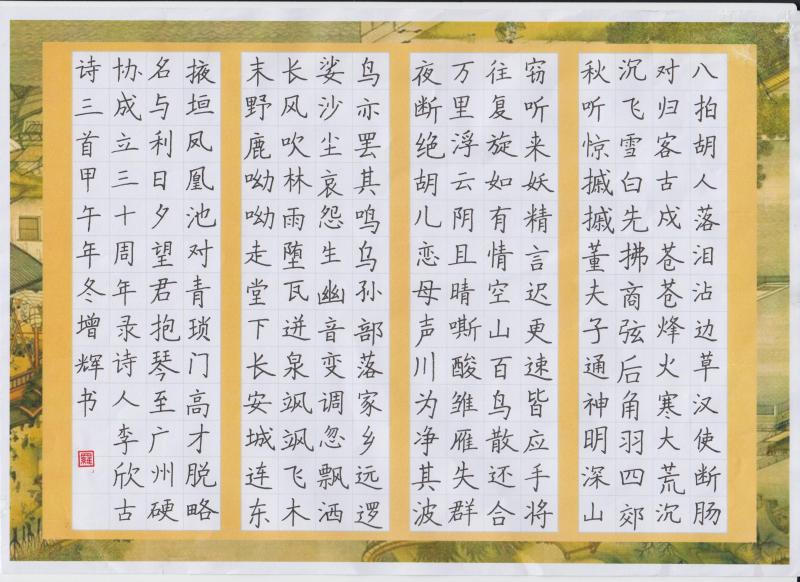 八拍胡人落泪沾边草汉使断肠
对归客古戍苍苍烽火寒大荒沉
沉飞雪白先拂商弦后角羽四郊
秋听惊摵摵董夫子通神明深山
窃听来妖精言迟更速皆应手将
往复旋如有情空山百鸟散还合
万里浮云阴且晴嘶酸雏雁失群
夜断绝胡儿恋母声川为净其波
鸟亦罢其鸣乌孙部落家乡远逻
娑沙尘哀怨生幽音变调忽飘洒
长风吹林雨堕瓦迸泉飒飒飞木
末野鹿呦呦走堂下长安城连东
掖垣凤凰池对青琐门高才脱略
名与利日夕望君抱琴至广州硬
协成立三十周年录诗人李欣古
诗三首甲午年冬增辉书